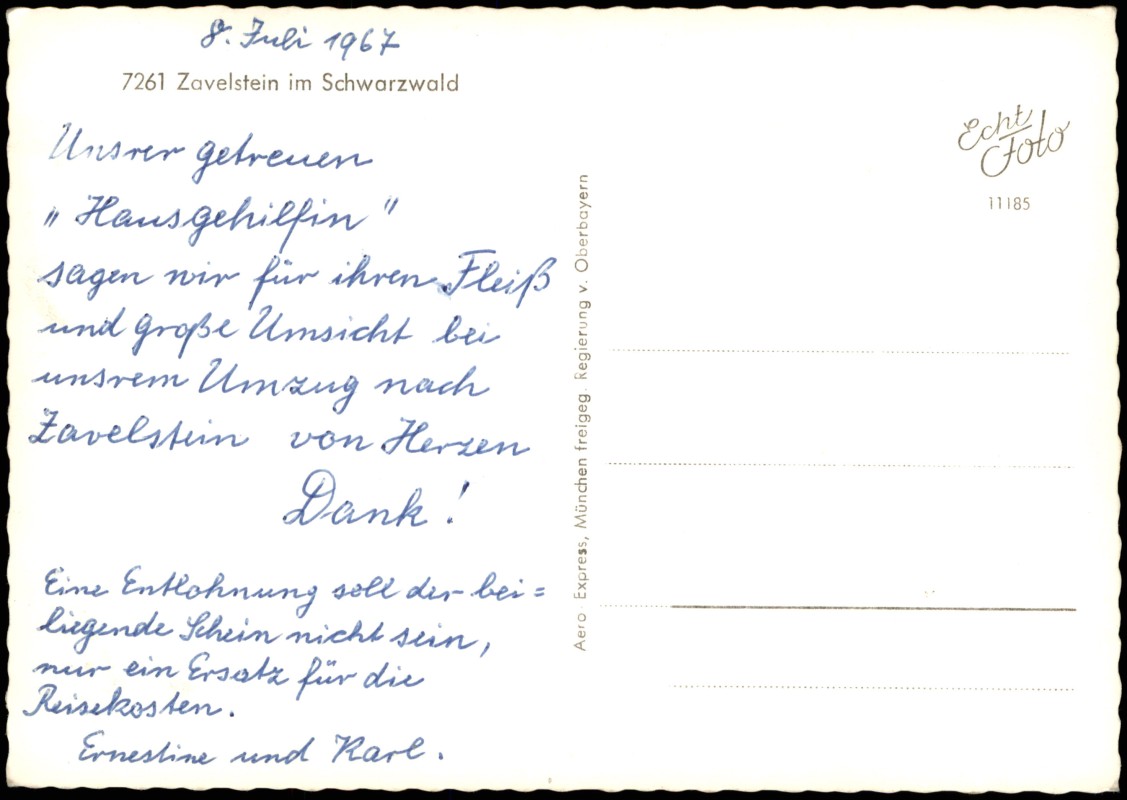 8. Juli 1967
7261 Zavelstein im Schwarzwald
Unsrer getreuen
„Hausgehilfin"
sagen wir für ihren Fleiß
und große Umsicht bei
unsrem Umzug nach
Zavelstein von Herzen
Dank!
Eine Entlohnung soll der bei=
liegende Schein nicht sein,
nur ein Ersatz für die
Reisekosten.
Ernestine und Karl.
Aero Express, München freigeg. Regierung v. Oberbayern
Echt
Foto
11185